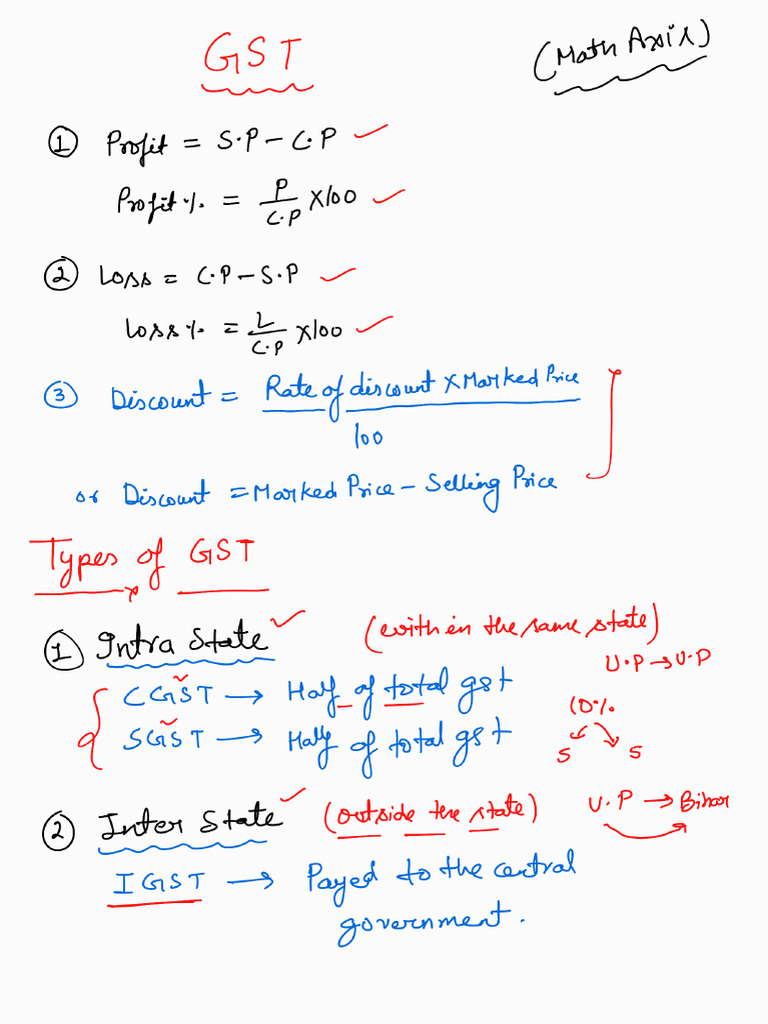 GST
(Math Axis)
① Profit = S.P - C.P
Profit % = P/C.P × 100
② Loss = C.P - S.P
Loss % = L/C.P × 100
③ Discount = Rate of discount × Marked Price / 100
or Discount = Marked Price - Selling Price
Types of GST
① Intra State (with in the same state)
U.P → U.P
CGST → Half of total gst
10%
SGST → Half of total gst
5 5
② Inter State (outside the state) U.P → Bihar
IGST → Payed to the central
government.